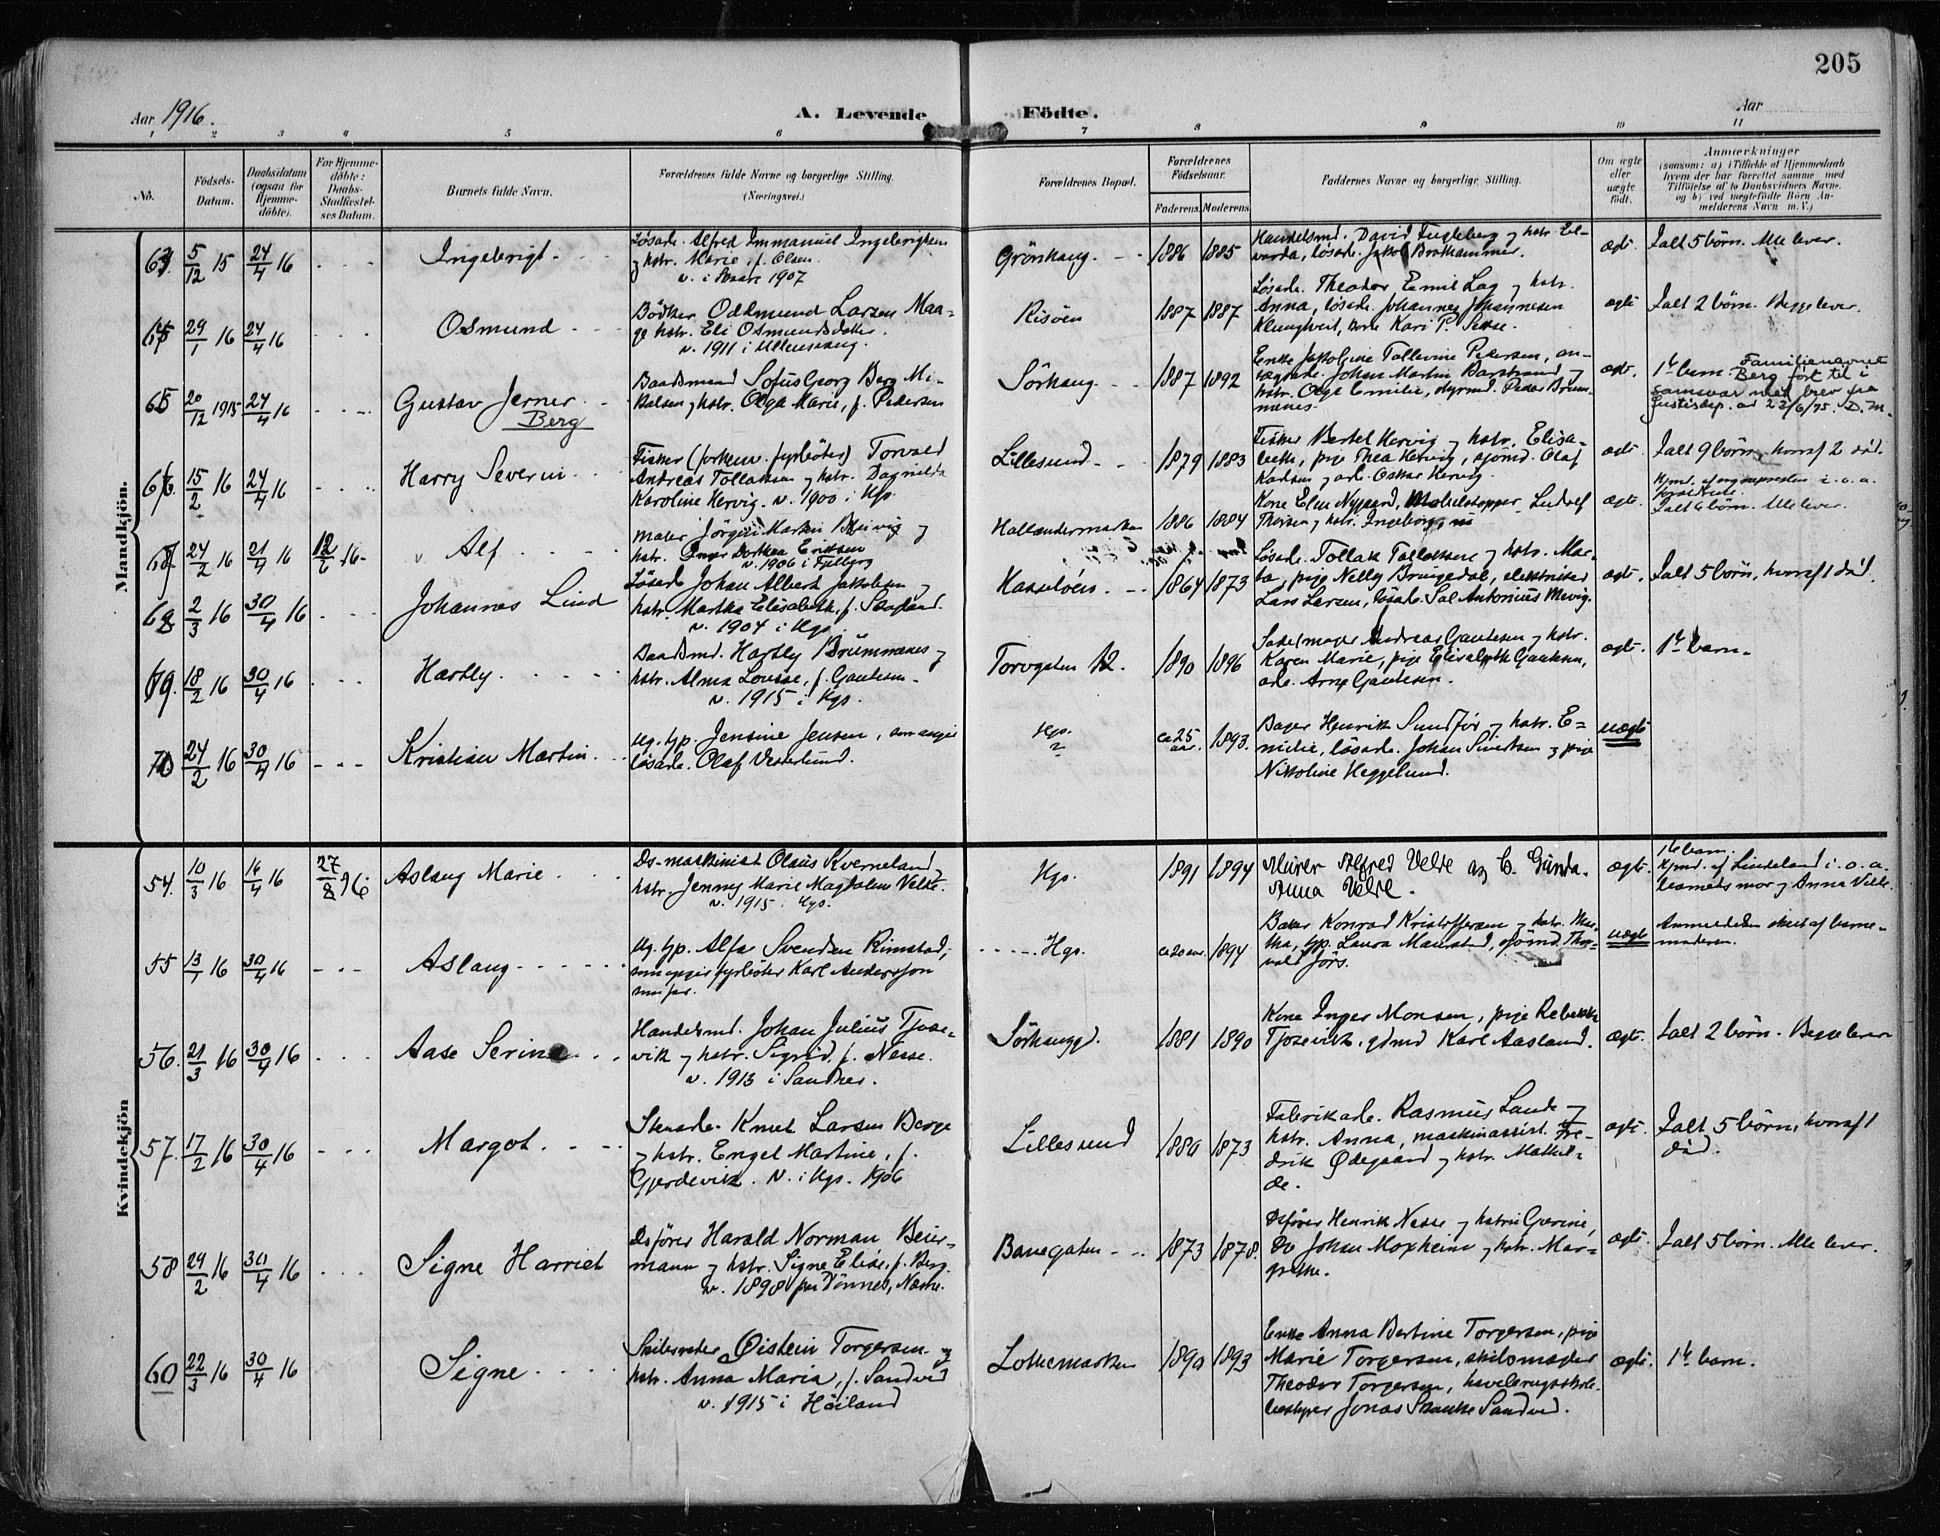 205
Aar 1916.
A. Levende Födte.
Aar
1 2 3 4 5 6 7 8 9 10 11
No.
Födsels-Datum.
Daabsdatum (ogsaa for Hjemme-döbte).
For Hjemme-döbte: Daabs-Stadfæstel-ses Datum.
Barnets fulde Navn.
Forældrenes fulde Navne og borgerlige Stilling. (Næringsvei.)
Forældrenes Bopæl.
Forældrenes Födselsaar.
Faderens Moderens
Faddernes Navne og borgerlige Stilling.
Om ægte eller uægte födt.
Anmærkninger
(saasom: a) i Tilfælde af Hjemmedaab
hvem der har forrettet samme, med
Tilföielse af to Daabsvidners Navne,
og b) ved uægtefödte Börn An-
melderens Navn m. V.)
Mandkjön.
63. 5/12 15 24/4 16 Ingebrigt
Løsarb. Alfred Immanuel Ingebrigtsen
og hstr. Marie, f. Olsen
v. i Skaare 1907
Grönhaug. 1886 1885
Handelsmd. David Fugleberg og hstr.
løsarb. Jakob
ægte. Ialt 5 börn. Alle lever.
29/1 16 24/4 16 Osmund
Bödker Oddmund Larsen Maa-
ge hstr. Eli Osmundsdatter.
v. 1911 i Ullensvang.
Risöen 1887 1887
Løsarb. Theodor Emil Lag og hstr.
Anna, løsarb. Johannes Johannesen
Kari P.
ægte Ialt 2 börn. Begge lever.
65 20/12 1915 24/4 16 Gustav Jerner
Berg
Baadsmand Sofus Georg Berg Mi-
kalsen og hstr. Olga Marie, f. Pedersen
Sörhaug 1887 1892
Enke Jakobine Tollevine Pedersen,
Johan Martin og
hstr. Olga Emilie, styrmd. Peder
ægte. 1ste barn. Familienavnet
Berg ført til i
samsvar med brev fra
Justisdep. av 23/6/75. D.M.
66. 15/2 16 24/4 16 Harry Severin
Fisker (forhenv. fyrböter) Torvald
Andreas Tollaksen og hstr. Dagnilda
Karoline Hervig. v. 1900 i Hgs.
Lillesund 1879 1883
Fisker Bertel Hervig og hstr. Elisa-
beth, pige Thea Hervig, sjömd. Olaf
og arb. Oskar Hervig.
ægte. Ialt 9 börn, hvoraf 2 död.
24/2 16 21/4 16 12/6 16 Alf
Maler Jörgen Martin og
hstr. Inger Dorthea Eriksen
v. 1906 i
Hollendermarken 1886 1884
Kone Elen Nygaard,
Thorsen og hstr. Ingeborg
ægte. Hjmd. af i. o. a.
Ialt 6 börn. Alle lever.
68 2/3 16 30/4 16 Johannes Lind
Løsarb Johan Albert Jakobsen og
hstr. Martha Elisabeth, f. Skogland.
v. 1904 i Hgs.
Hasselöen 1864 1873
Løsarb. Tollak Tollaksen og hstr. Mar-
ta, pige Nelly elektriker
Lars Larsen, løsarb. Sal. Antonius
ægte. Ialt 5 börn, hvoraf 1 död.
69. 18/2 16 30/4 16 Hartly
Baadsmd. Hartly Brummenes og
hstr. Alma Lovise, f. Gautesen
v. 1915 i Hgs.
Torvgaten 12. 1890 1896
Sadelmager Andreas Gautesen og hstr.
Karen Marie, pige Elisabeth Gautesen,
arb. Arne Gautesen.
ægte. 1ste barn.
70 24/2 16 30/4 16 Kristian Martin
Ug. tjp. Jensine Jensen, som angir
løsarb. Olaf Vesterlund.
Hgs. ca 25 aar. 1893.
Bager Henrik Sundför og hstr. E-
milie, løsarb. Johan Sivertsen og pige
Nikoline Heggelund.
uægte
Kvindekjön
54. 10/3 16 16/4 16 27/8 16 Aslaug Marie
Ds-maskinist Olaus Kverneland
hstr. Jenny Marie Magdalene Velde.
v. 1915 Hgs.
Hgs. 1891 1894
Murer Alfred Velde og
Anna Velde.
ægte. 1ste barn.
Hjmd. af Lindeland i. o. a.
barnets mor og Anna Velde.
55 13/1 16 30/4 16 Aslaug
Ug. tjp. Alfa Svendsen Rimstad,
som opgir fyrböter Karl Andersson
som far.
Hgs. ca 20 aar. 1894
Baker Konrad Kristoffersen og hstr. Mar-
tha, tjp. Laura sjömd. Thor-
vald
uægte Anmeldelsen skeet af barne-
moderen.
56. 21/3 16 30/4 16 Aase Serine
Handelsmd. Johan Julius Tjose-
vik og hstr. Sigrid, f. Nesse.
v. 1913 i Sandnes.
Sörhauggd. 1881 1890
Kone Inger Monsen, pige Rebekka
Tjosevik, gdmd Karl Aasland.
ægte. Ialt 2 börn. Begge lever
57. 17/2 16 30/4 16 Margot
Stenarb. Knut Larsen Berge
og hstr. Engel Martine, f.
Gjerdevik. v. i Hgs. 1906
Lillesund 1880 1873
Fabrikarb. Rasmus Lande og
hstr. Anna, maskinassist. Fre-
drik Ødegaard og hstr. Mathil-
de.
ægte. Ialt 5 börn, hvoraf 1
död.
58 29/2 16 30/4 16 Signe Harriet
Dsförer Harald Norman Beier-
mann og hstr. Signe Elise, f. Berg.
v. 1898 paa Dönnes, Nesne.
Banegaten 1873 1878.
Dsförer Henrik Nesse og hstru Gurine,
Do Johan Moxheim og hstr. Mar-
grethe.
ægte. Ialt 5 börn. Alle lever.
60 22/3 16 30/4 16 Signe
Skibsreder Øistein Torgersen og
hstr. Anna Maria, f. Sandved
v. 1915 i Höiland
Lothemarken 1890 1893
Enke Anna Bertine Torgersen, pige
Marie Torgersen, skibsmægler
Theodor Torgersen, havebrugsskole-
bestyrer Jonas Skanke Sandved.
ægte. 1ste barn.